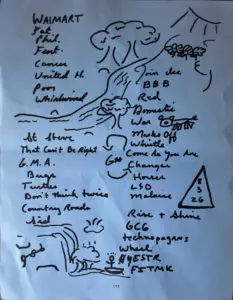 WALMART
Fat
Phil.
Cancer
United H.
Poor
Whirlwind
St Steve
That Can't Be Right
G.M.A.
Bugs
Turtles
Don't think twice
Country Roads
Sad
Join Ice
BBB
Red
Domestic
War
Masks Off
Whistle
Come As You Are
Changes
Horses
LSD
Malaise
Rise + Shine
GCG
technopagans
Wheel
#YESTR
FITMK
God
3
26
111